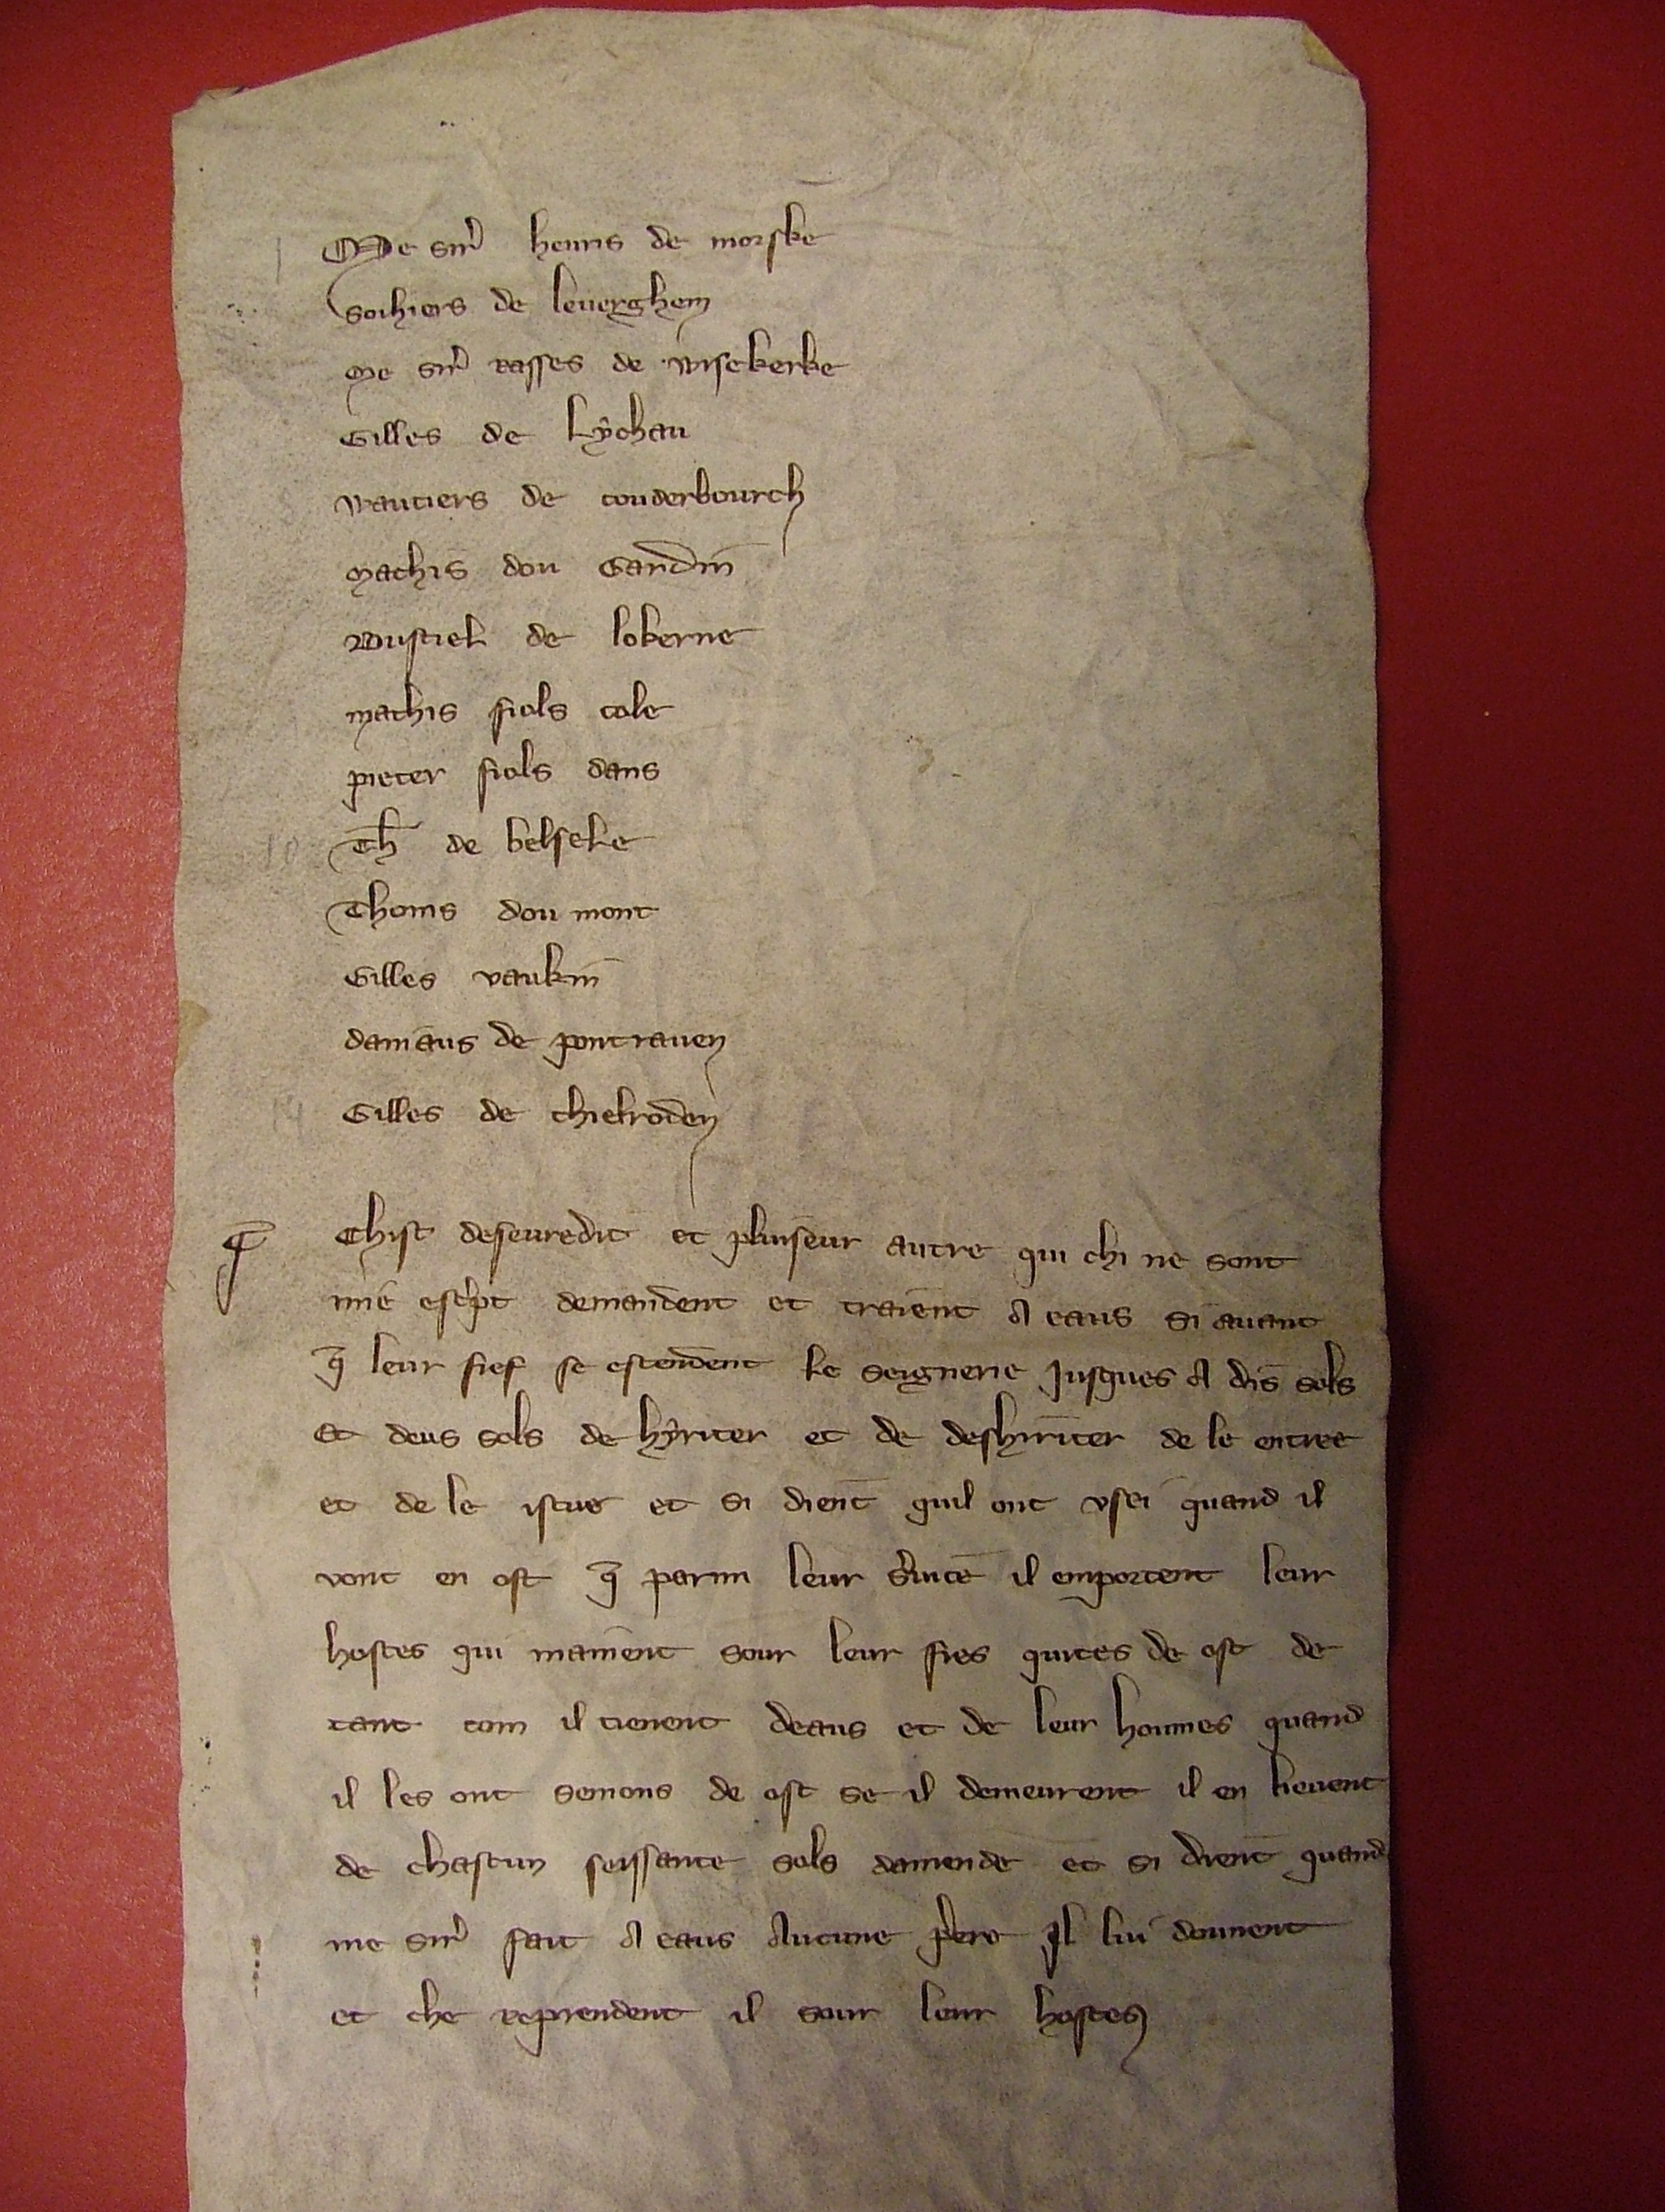 Me sir̄ henris de morske
Soihiers de leuerghem
Me sir̄ rasses de wisekerke
Gilles de Lychau
Wautiers de couderbourch
Mathis dou Gardin
Wistiel de lokerne
Mathis fiols cole
pieter fiols dans
Th̄ de belsele
Thomis dou mont
Gilles vaukin
damiaus de pontrauen
Gilles de thielroden
Chist deseuredit et pluiseur autre qui chi ne sont
mie escpt demandent et traient A eaus si auant
q̄ leur fief se estendent le seignerie Jusques A dis sols
et deus sols de hyriter et de deshiriter de le entree
et de le issue et si dient quil ont vsei quand il
vont en ost q̄ parmi leur suice il emportent leur
hostes qui mainent sour leur fies quites de ost de
tant com il tienent deaus et de leur hommes quand
il les ont semons de ost se il demeurent il en lieuent
de chascun seissante sols damende et si dient quand
me sir̄ fait A eaus Aucune pere Il lui donnent
et che reprendent il sour leur hostes